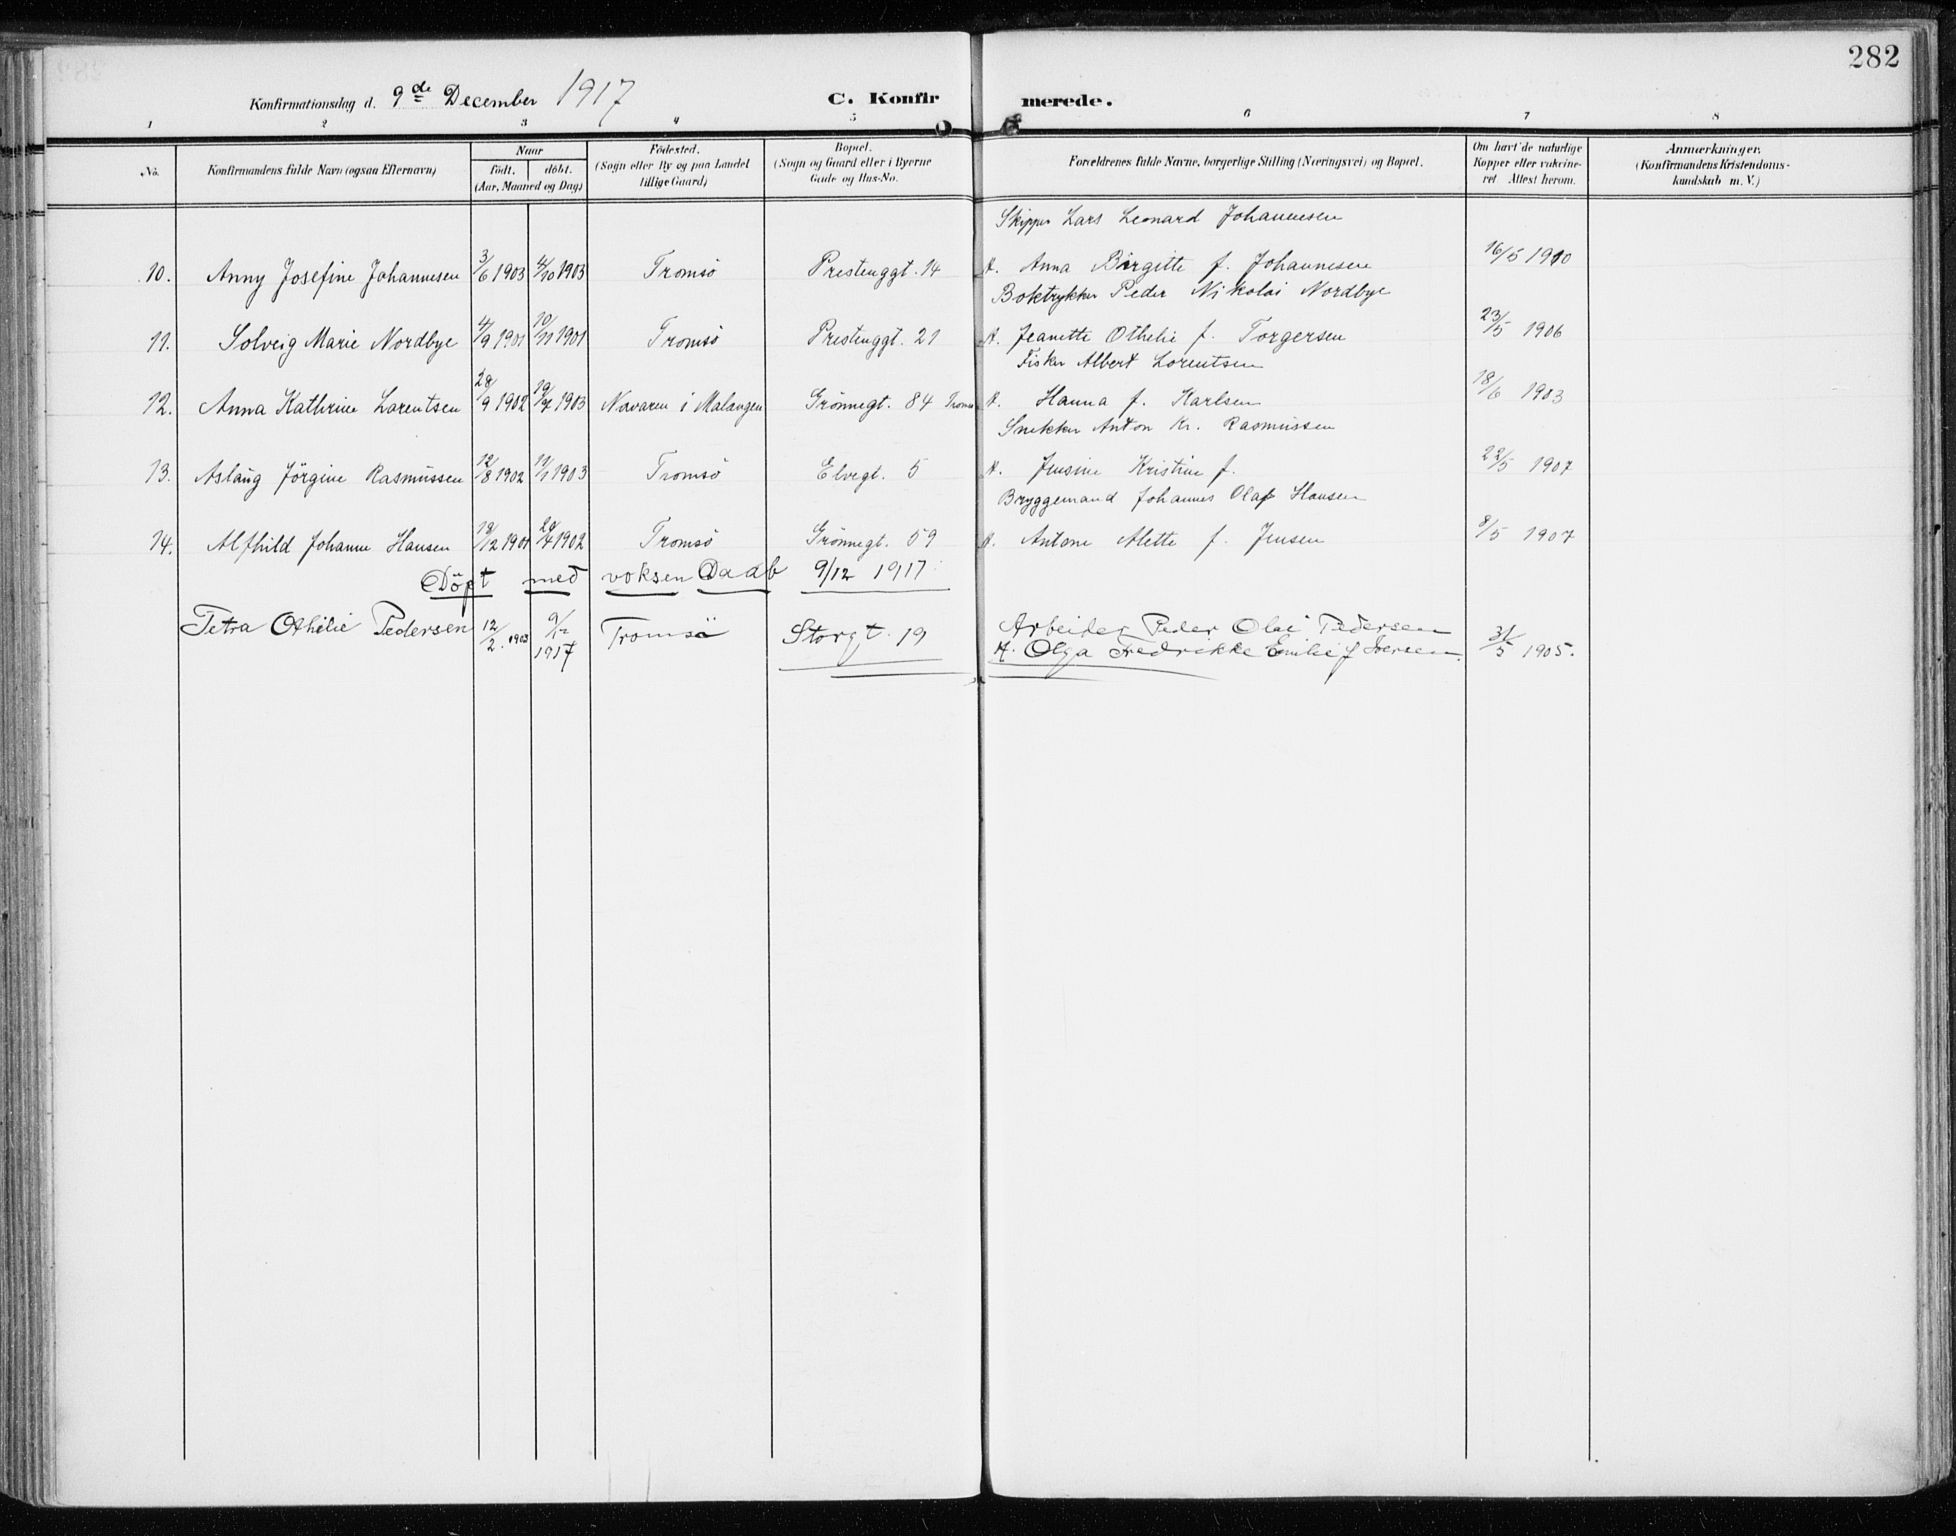 282
Konfirmationsdag d. 9de December 1917
C. Konfirmerede.
1 2 3 4 5 6 7 8
No.
Konfirmandens fulde Navn (ogsaa Efternavn)
Naar
födt. döbt.
(Aar, Maaned og Dag)
Födested.
(Sogn eller By og paa Landet
tillige Gaard)
Bopæl.
(Sogn og Gaard eller i Byerne
Gade og Hus-No.
Forældrenes fulde Navne, borgerlige Stilling (Næringsvei) og Bopæl.
Om havt de naturlige
Kopper eller vakcine-
ret Attest herom.
Anmærkninger.
(Konfirmandens Kristendoms-
kundskab m. V.)
Skipper Lars Leonard Johannesen
10. Anny Josefine Johannesen 3/6 1903 4/10 1903 Tromsö Prestenggt. 14 H. Anna Birgitte f. Johannesen 16/5 1910
Boktrykker Peder Nikolai Nordbye
11. Solveig Marie Nordbye 4/9 1901 10/11 1901 Tromsö Prestenggt. 21 H. Jeanette Othelie f. Torgersen 23/5 1906
Fisker Albert Lorentsen
12. Anna Kathrine Lorentsen 28/9 1902 19/7 1903 Navaren i Malangen Grönnegt. 84 Tromsö H. Hanna f. Karlsen 18/6 1903
Snekker Anton Kr. Rasmussen
13. Aslaug Jörgine Rasmussen 12/8 1902 11/1 1903 Tromsö Elvegt. 5 H. Jensine Kristine f. 22/5 1907
Bryggemand Johannes Olaf Hansen
14. Alfhild Johanne Hansen 12 1901 1902 Tromsö Grönnegt. 59 H. Antone Alette f. Jensen 8/5 1907
Döpt med voksen Daab 9/12 1917
Petra Othelie Pedersen 12/2 1903 9/12 1917 Tromsö Storgt. 19 Arbeider Peder Olai Pedersen
H. Olga Fredrikke Emilie f Iversen. 31/5 1905.